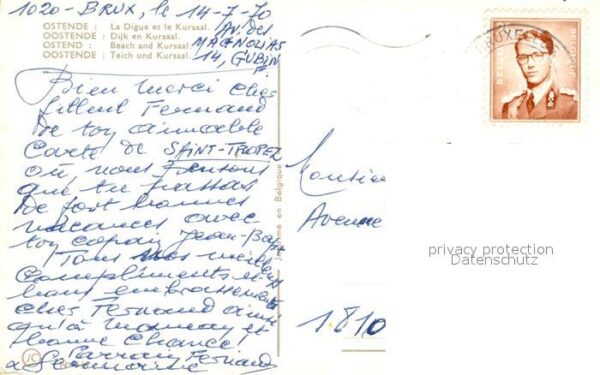 1020-BRUX, le 14-7-70
OSTENDE : La Digue et le Kursaal.
OOSTENDE : Dijk en Kursaal.
OSTEND : Beach and Kursaal.
OOSTENDE : Teich und Kursaal.
AV. des
MAGNOLIAS
14,
Bien merci cher
filleul Fernand
de toy aimable
Carte de SAINT-TROPEZ
où nous
que tu passas
de fort bonnes
vacances avec
toy copain Jean-
Tous nos meilleurs
Compliments et
bons embrassements
cher Fernand ainsi
qu'à maman et
bonne Chance!
Parrain Fernand
à
Imprimé en Belgique
BRUXELLES
BELGIE BELGIQUE
Avenue
1810
privacy protection
Datenschutz